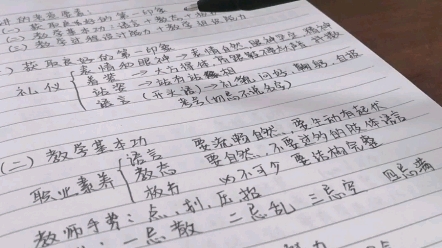 讲的考查要素:
(一) 获取良好的第一印象
(二) 教学基本功:语言+教态+板书
(三) 教学过程设计能力+教学组织能力
) 获取良好的第一印象
礼仪
表情和眼神→表情自然、眼神坚定、精神
着装→大方得体
站姿→站有站相
语言(开头语)→礼貌、问好、鞠躬、自报
考号(切忌不说名字)
(二) 教学基本功
职业素养
语言 要流畅自然、要生动有起伏
教态 要自然、不要过多的肢体语言
板书 必不可少 要结构完整
教师手势:点,扣,压,指
一忌散 二忌乱 三忌空 四忌满